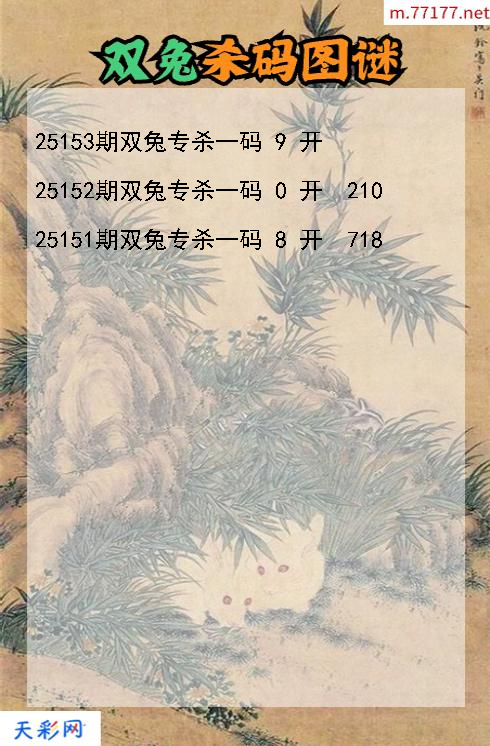 m.77177.net
双兔杀码图谜
25153期双兔专杀一码 9 开
25152期双兔专杀一码 0 开 210
25151期双兔专杀一码 8 开 718
天彩网